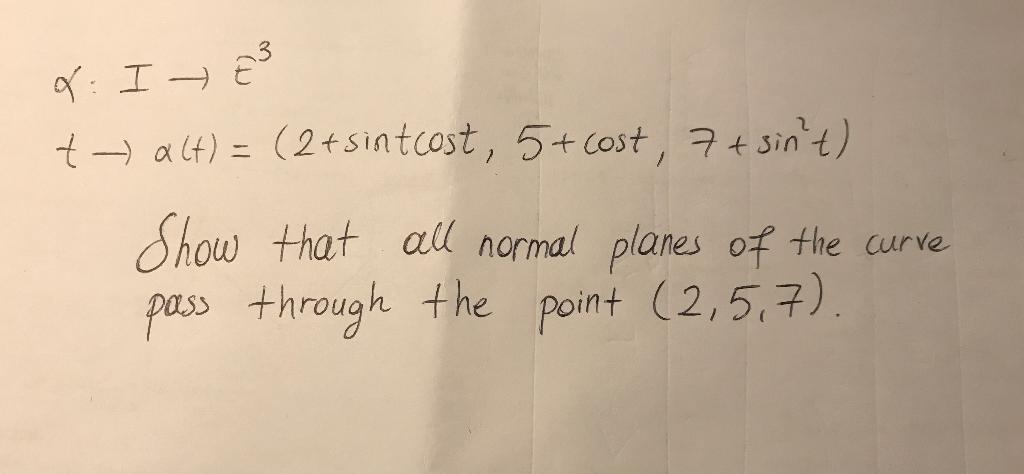 α: I → E³
t → α(t) = (2+sintcost, 5+cost, 7+sin²t)
Show that all normal planes of the curve
pass through the point (2,5,7).